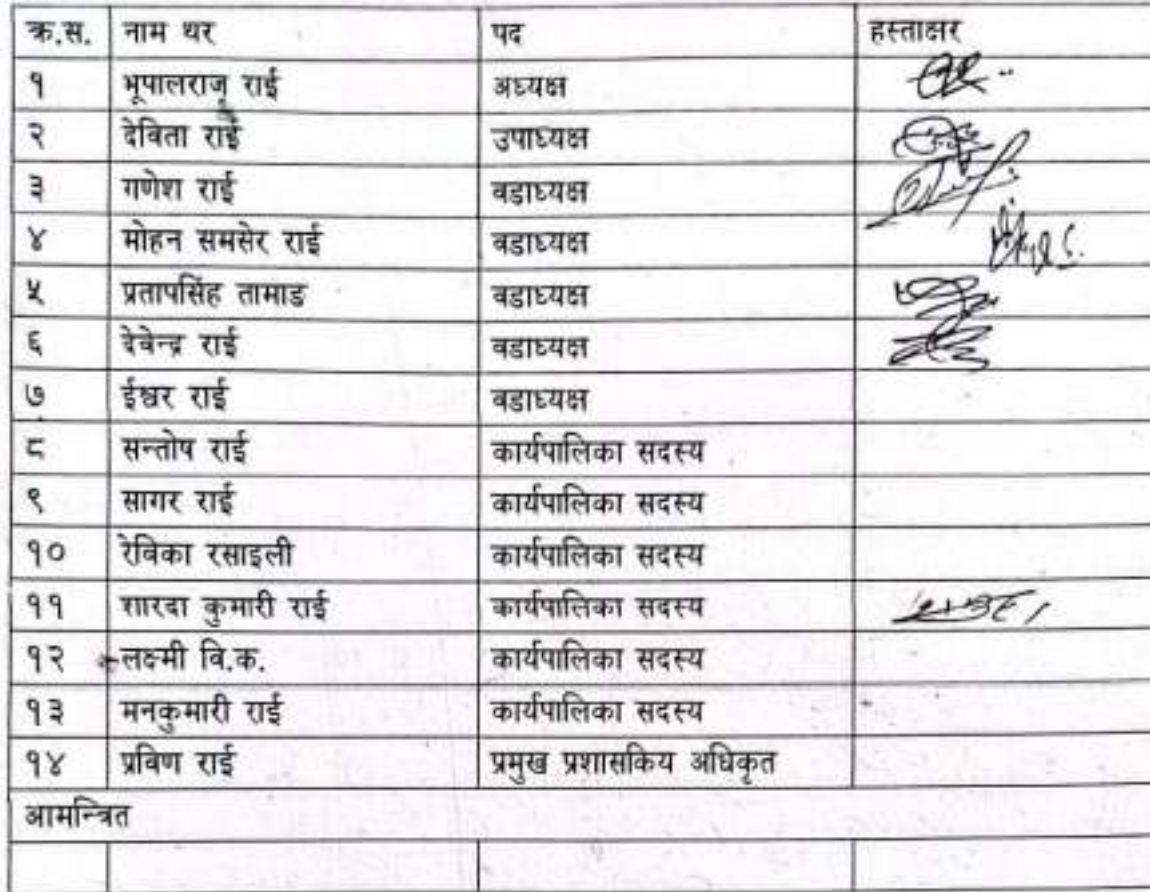 क्र.स. नाम थर पद हस्ताक्षर
१ भूपालराज राई अध्यक्ष
२ देविता राई उपाध्यक्ष
३ गणेश राई वडाध्यक्ष
४ मोहन समसेर राई वडाध्यक्ष
५ प्रतापसिंह तामाङ वडाध्यक्ष
६ देवेन्द्र राई वडाध्यक्ष
७ ईश्वर राई वडाध्यक्ष
८ सन्तोष राई कार्यपालिका सदस्य
९ सागर राई कार्यपालिका सदस्य
१० रेविका रसाइली कार्यपालिका सदस्य
११ शारदा कुमारी राई कार्यपालिका सदस्य
१२ लक्ष्मी वि.क. कार्यपालिका सदस्य
१३ मनकुमारी राई कार्यपालिका सदस्य
१४ प्रविण राई प्रमुख प्रशासकिय अधिकृत
आमन्त्रित